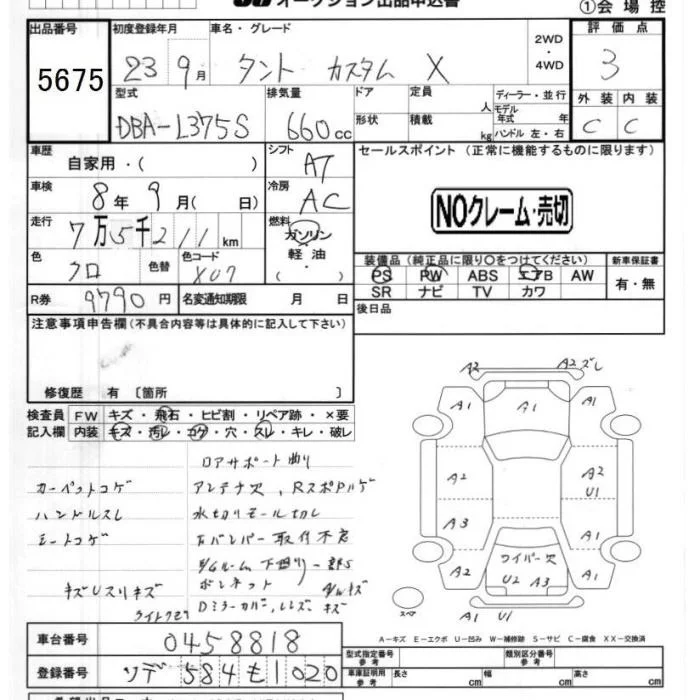 オークション出品申込書
①会場控
出品番号 初度登録年月 車名・グレード 2WD・4WD 評価点
5675 23 9月 タント カスタム X 3
型式 排気量 ドア 定員 人 ディーラー・並行 外装 内装
DBA-L375S 660cc 形状 積載 kg モデル年式 年 ハンドル 左・右 C C
車歴 自家用・( ) シフト AT セールスポイント (正常に機能するものに限ります)
車検 8年9月( 日) 冷房 AC
NOクレーム・売切
走行 7万5千211km 燃料 ガソリン 軽油 ・( )
色 クロ 色替 色コード X07
装備品 (純正品に限り〇をつけてください) 新車保証書
PS PW ABS エアB AW 有・無
SR ナビ TV カワ
R券 9790円 名変通知期限 月 日 後日品
注意事項申告欄(不具合内容等は具体的に記入して下さい)
修復歴 有 〔箇所 〕
検査員 FW キズ・飛石・ヒビ割・リペア跡・×要
記入欄 内装 キズ・汚レ・コゲ・穴・スレ・キレ・破レ
ロアサポート曲り
カーペットコゲ アンテナ欠、RスポPルゲ
ハンドルスレ 水切りモール切レ
シートコゲ
下廻り
ボンネット
キズUスリキズ
Dミラーカバー、レンズ、キズ
A2 A2 ズレ
A1 A1 A1
A2 A2 U1
A3 A1
A2 ワイパー欠 A1
U2 A3
スペア A1 U1
A-キズ E-エクボ U-凹み W-補修跡 S-サビ C-腐食 XX-交換済
車台番号 0458818
型式指定番号 参考 類別区分番号 参考
登録番号 ソデ 584 も 1020
車庫証明用 参考 長さ cm 幅 cm 高さ cm